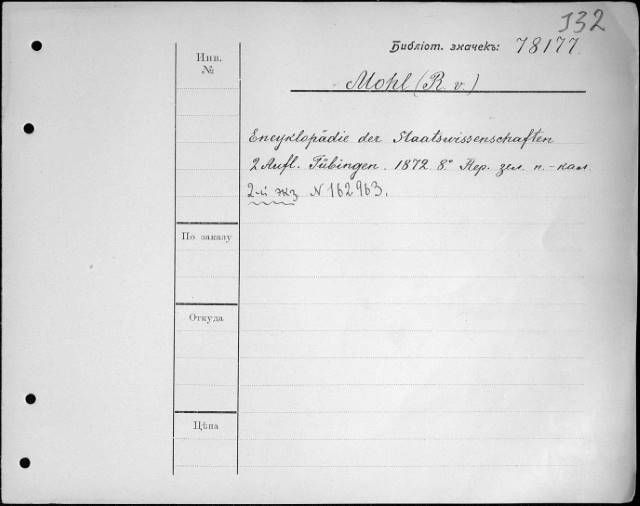 132
Библіот. значекъ: 78177.
Инв.
№
Mohl (R. v.)
Encyklopädie der Staatswissenschaften
2 Aufl. Tübingen. 1872. 8° Кер. зел. п.-кал.
2-й экз N 162963.
По заказу
Откуда
Цѣна